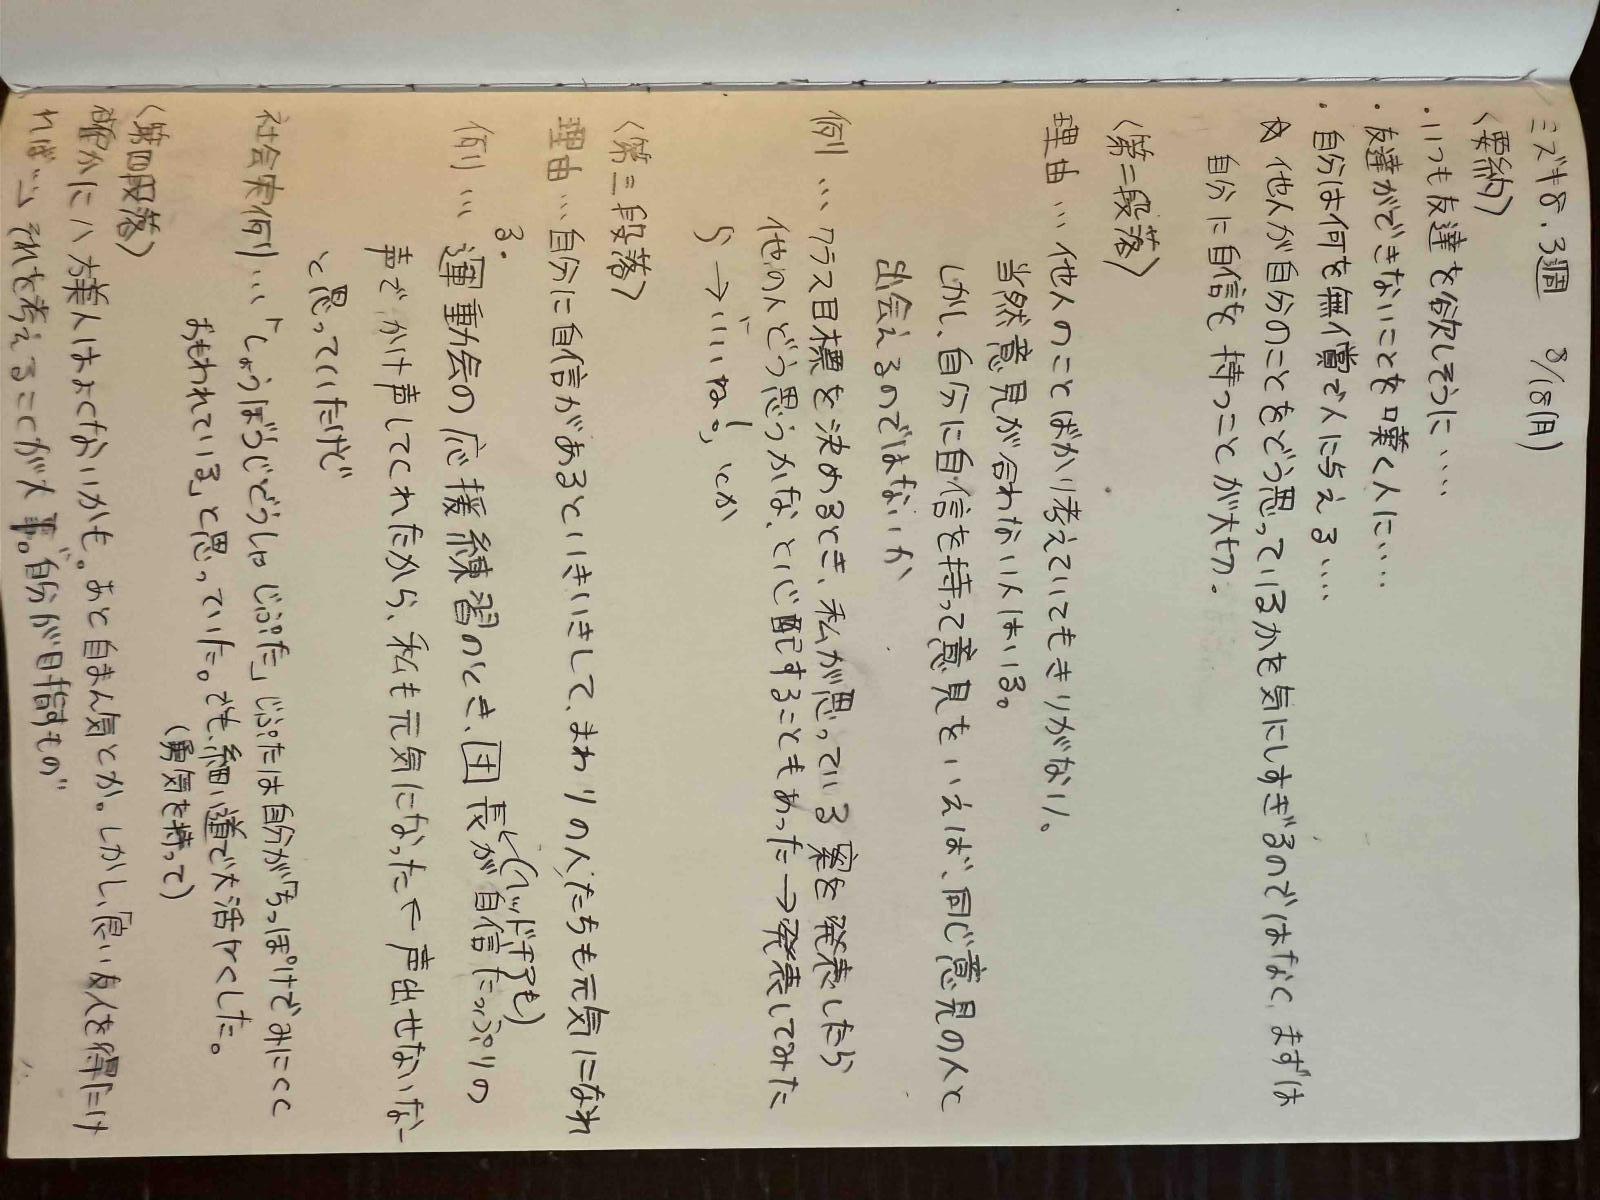 ミズキ8.3週 8/18(月)
〈要約〉
・いつも友達を欲しそうに‥‥
・友達ができないことを嘆く人に‥‥
・自分は何を無償で人に与える‥‥
☆他人が自分のことをどう思っているかを気にしすぎるのではなく、まずは
自分に自信を持つことが大切.
〈第二段落〉
理由…他人のことばかり考えていてもきりがない。
当然意見が合わない人はいる。
しかし、自分に自信を持って意見をいえば、同じ意見の人と
出会えるのではないか
例…クラス目標を決めるとき、私が思っている案を発表したら
他の人どう思うかな、と心配することもあった→発表してみた
ら→「いいね!」とか
〈第三段落〉
理由…自分に自信があるといきいきして、まわりの人たちも元気になれ
る.
例…運動会の応援練習のとき、団長が自信たっぷりの
(ヘッドギアも)
声でかけ声してくれたから、私も元気になった← 声出せないなー
と思っていたけど
社会実例…「しょうぼうじどうしゃ じぷた」じぷたは自分が「ちっぽけでみにくく
おもわれている」と思っていた。でも、細い道で大活やくした。
(勇気を持って)
〈第四段落〉
確かに八方美人はよくないかも。あと自まん気とか。しかし、「良い友人を得たけ
れば〜」それを考えることが大事。"自分が目指すもの"